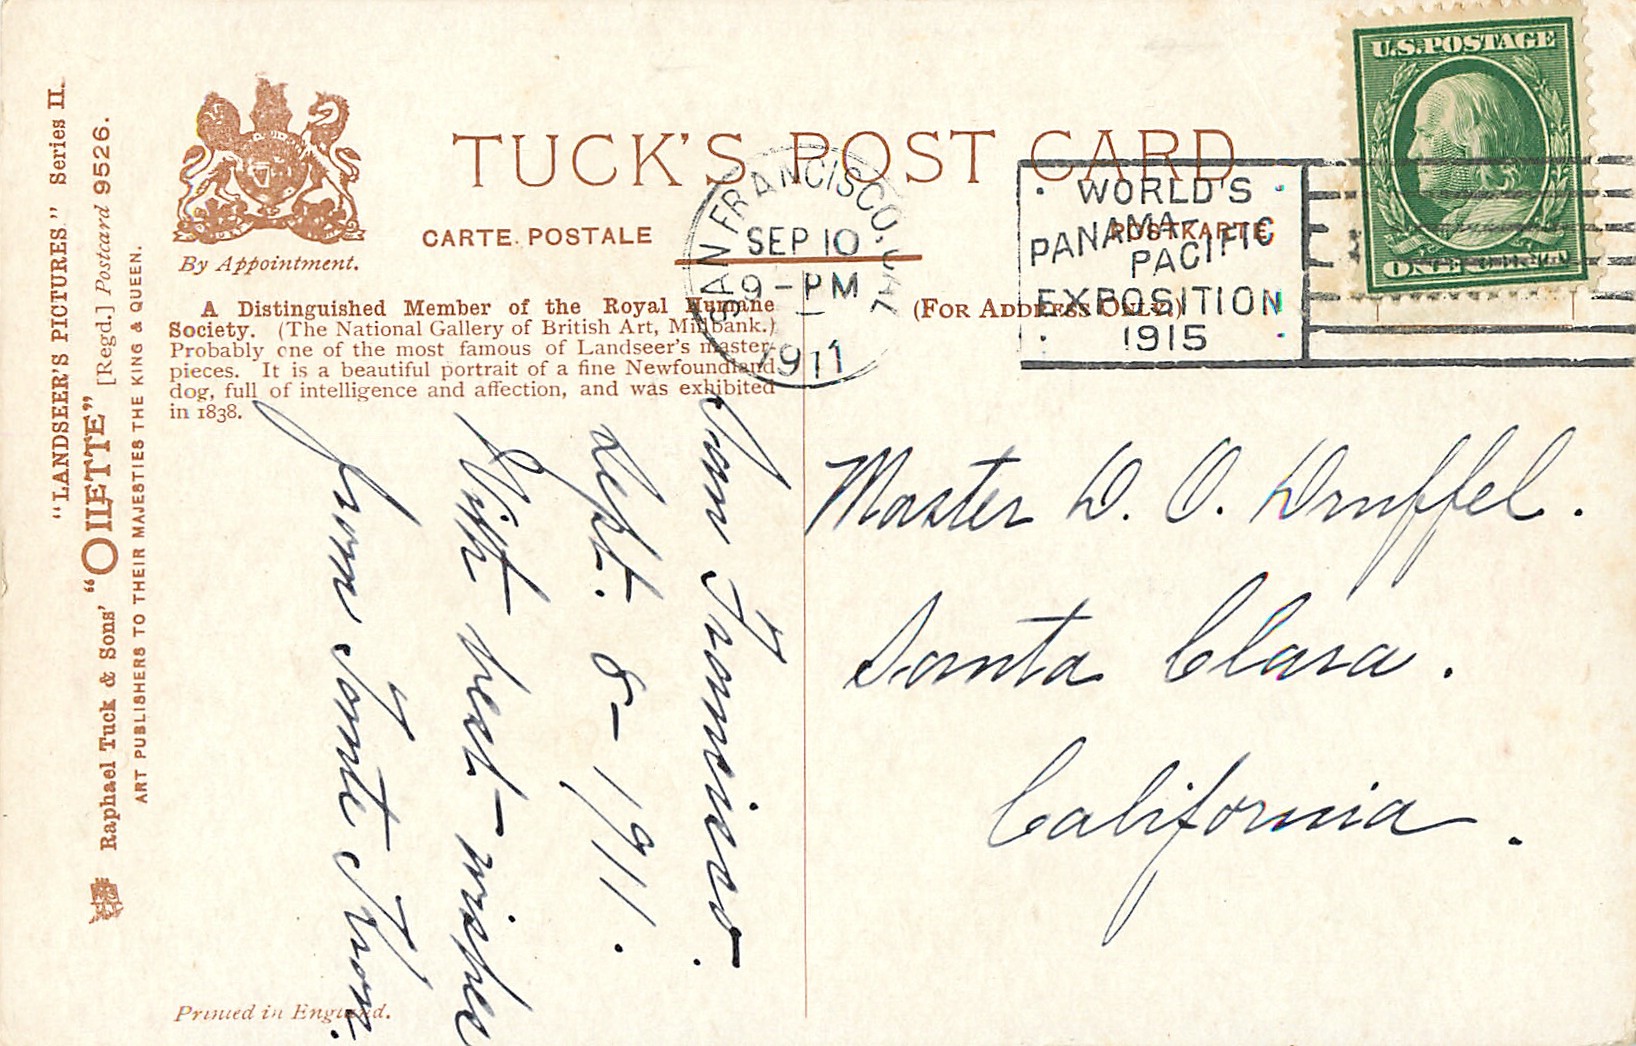 "LANDSEER'S PICTURES." Series II.
Raphael Tuck & Sons' "OILETTE" [Regd.] Postcard 9526.
ART PUBLISHERS TO THEIR MAJESTIES THE KING & QUEEN.
By Appointment.
TUCK'S POST CARD
CARTE POSTALE
POSTKARTE
(FOR ADDRESS ONLY.)
A Distinguished Member of the Royal Humane
Society. (The National Gallery of British Art, Millbank.)
Probably one of the most famous of Landseer's master-
pieces. It is a beautiful portrait of a fine Newfoundland
dog, full of intelligence and affection, and was exhibited
in 1838.
SAN FRANCISCO, CAL.
SEP 10
9-PM
1911
WORLD'S
PANAMA-
PACIFIC
EXPOSITION
1915
U.S. POSTAGE
ONE CENT
San Francisco.
Sept. 8-1911.
With best-wishes
from Tante
Master D. O. Druffel.
Santa Clara.
California.
Printed in England.